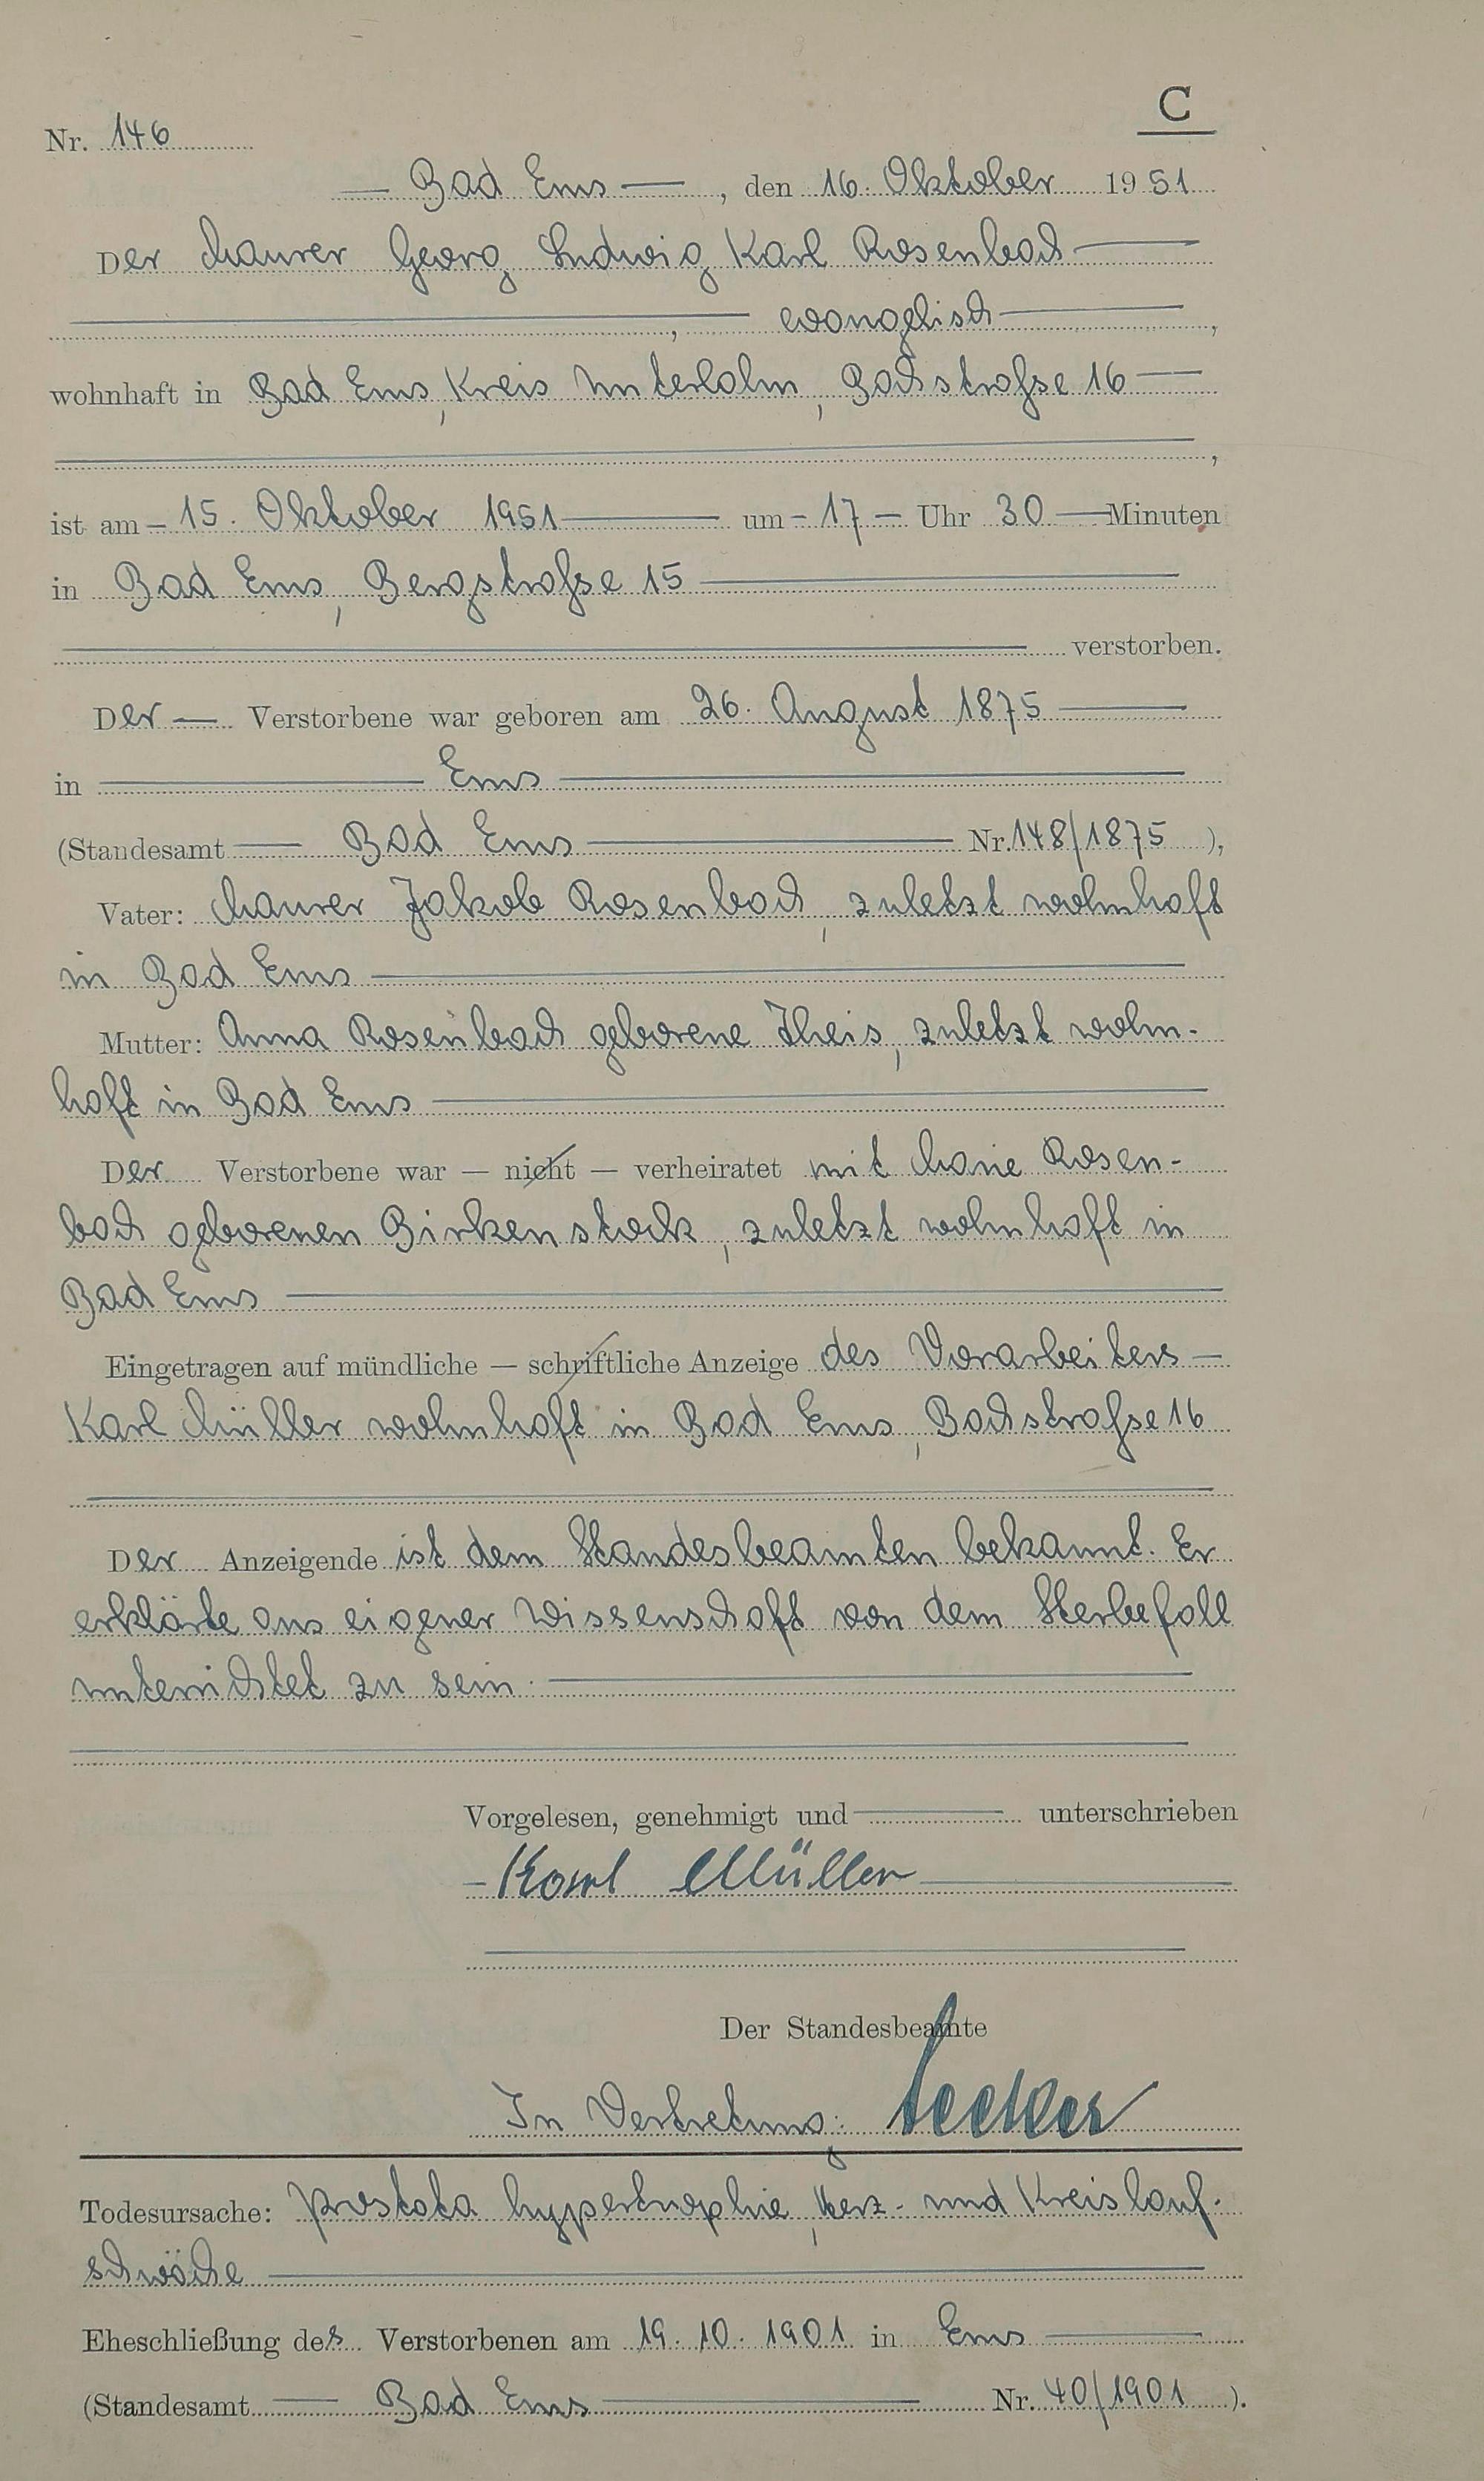 C
Nr. 146
— Bad Ems —, den 16. Oktober 1951
Der Maurer Georg Ludwig Karl Rosenbach —
—, — evangelisch —,
wohnhaft in Bad Ems, Kreis Unterlahn, Bachstraße 16 —
—,
ist am — 15. Oktober 1951 — um — 17 — Uhr 30 — Minuten
in Bad Ems, Bergstraße 15 —
— verstorben.
Der — Verstorbene war geboren am 26. August 1875 —
in — Ems —
(Standesamt — Bad Ems — Nr. 148/1875 ),
Vater: Maurer Jakob Rosenbach, zuletzt wohnhaft
in Bad Ems —
Mutter: Anna Rosenbach geborene Theis, zuletzt wohn-
haft in Bad Ems —
Der Verstorbene war — nicht — verheiratet mit Marie Rosen-
bach geborenen Birkenstock, zuletzt wohnhaft in
Bad Ems —
Eingetragen auf mündliche — schriftliche Anzeige des Vorarbeiters —
Karl Müller wohnhaft in Bad Ems, Bachstraße 16
Der Anzeigende ist dem Standesbeamten bekannt. Er
erklärte aus eigener Wissenschaft von dem Sterbefall
unterrichtet zu sein. —
Vorgelesen, genehmigt und — unterschrieben
— Karl Müller —
Der Standesbeamte
In Vertretung:
Todesursache: Prostata hypertrophie, Herz- und Kreislauf-
schwäche —
Eheschließung des Verstorbenen am 19.10.1901 in Ems —
(Standesamt — Bad Ems — Nr. 40/1901 ).